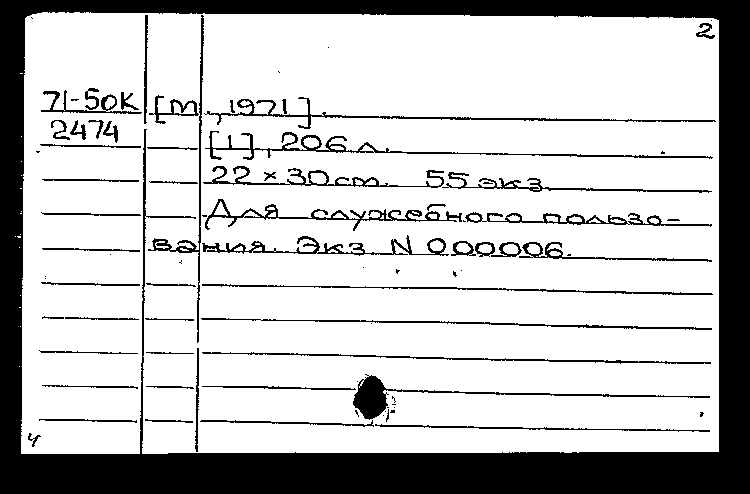 2
71-50к [М., 1971].
2474 [1], 206 л.
22 × 30 см. 55 экз.
Для служебного пользо-
вания. Экз N 000006.
ч